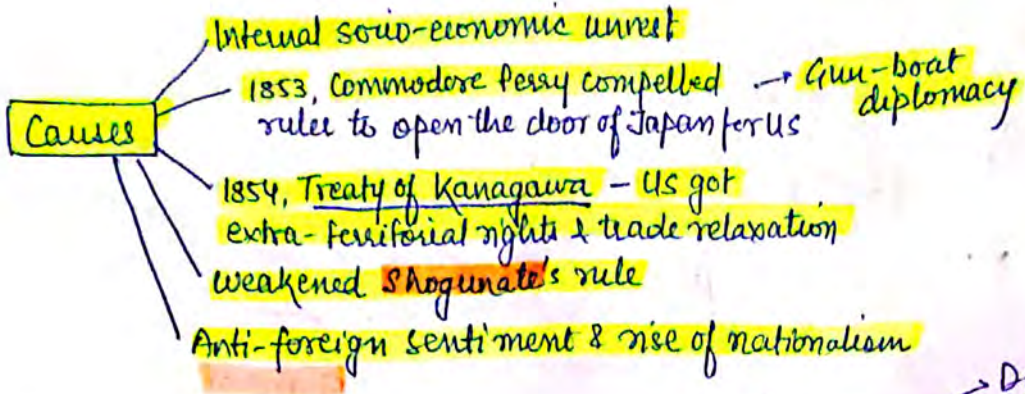 Internal socio-economic unrest
1853, Commodore Perry compelled → Gun-boat
diplomacy
ruler to open the door of Japan for US
Causes
1854, Treaty of Kanagawa - US got
extra-territorial rights & trade relaxation
weakened Shogunate's rule
Anti-foreign sentiment & rise of nationalism
→ D